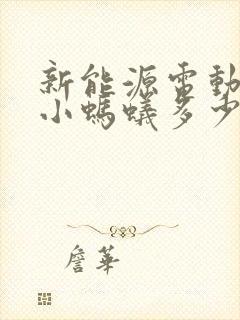 新能源電動
小螞蟻多少
詹華